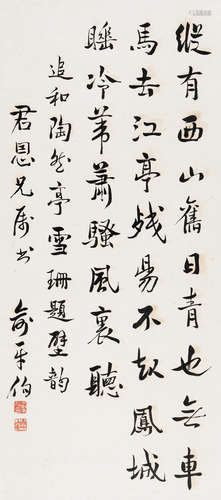 縱有西山舊日青也無車
馬去江亭殘昜不起鳳城
睡冷葦蕭騷風裏聽
追和陶然亭雪珊題壁韵
君恩兄属书 俞平伯